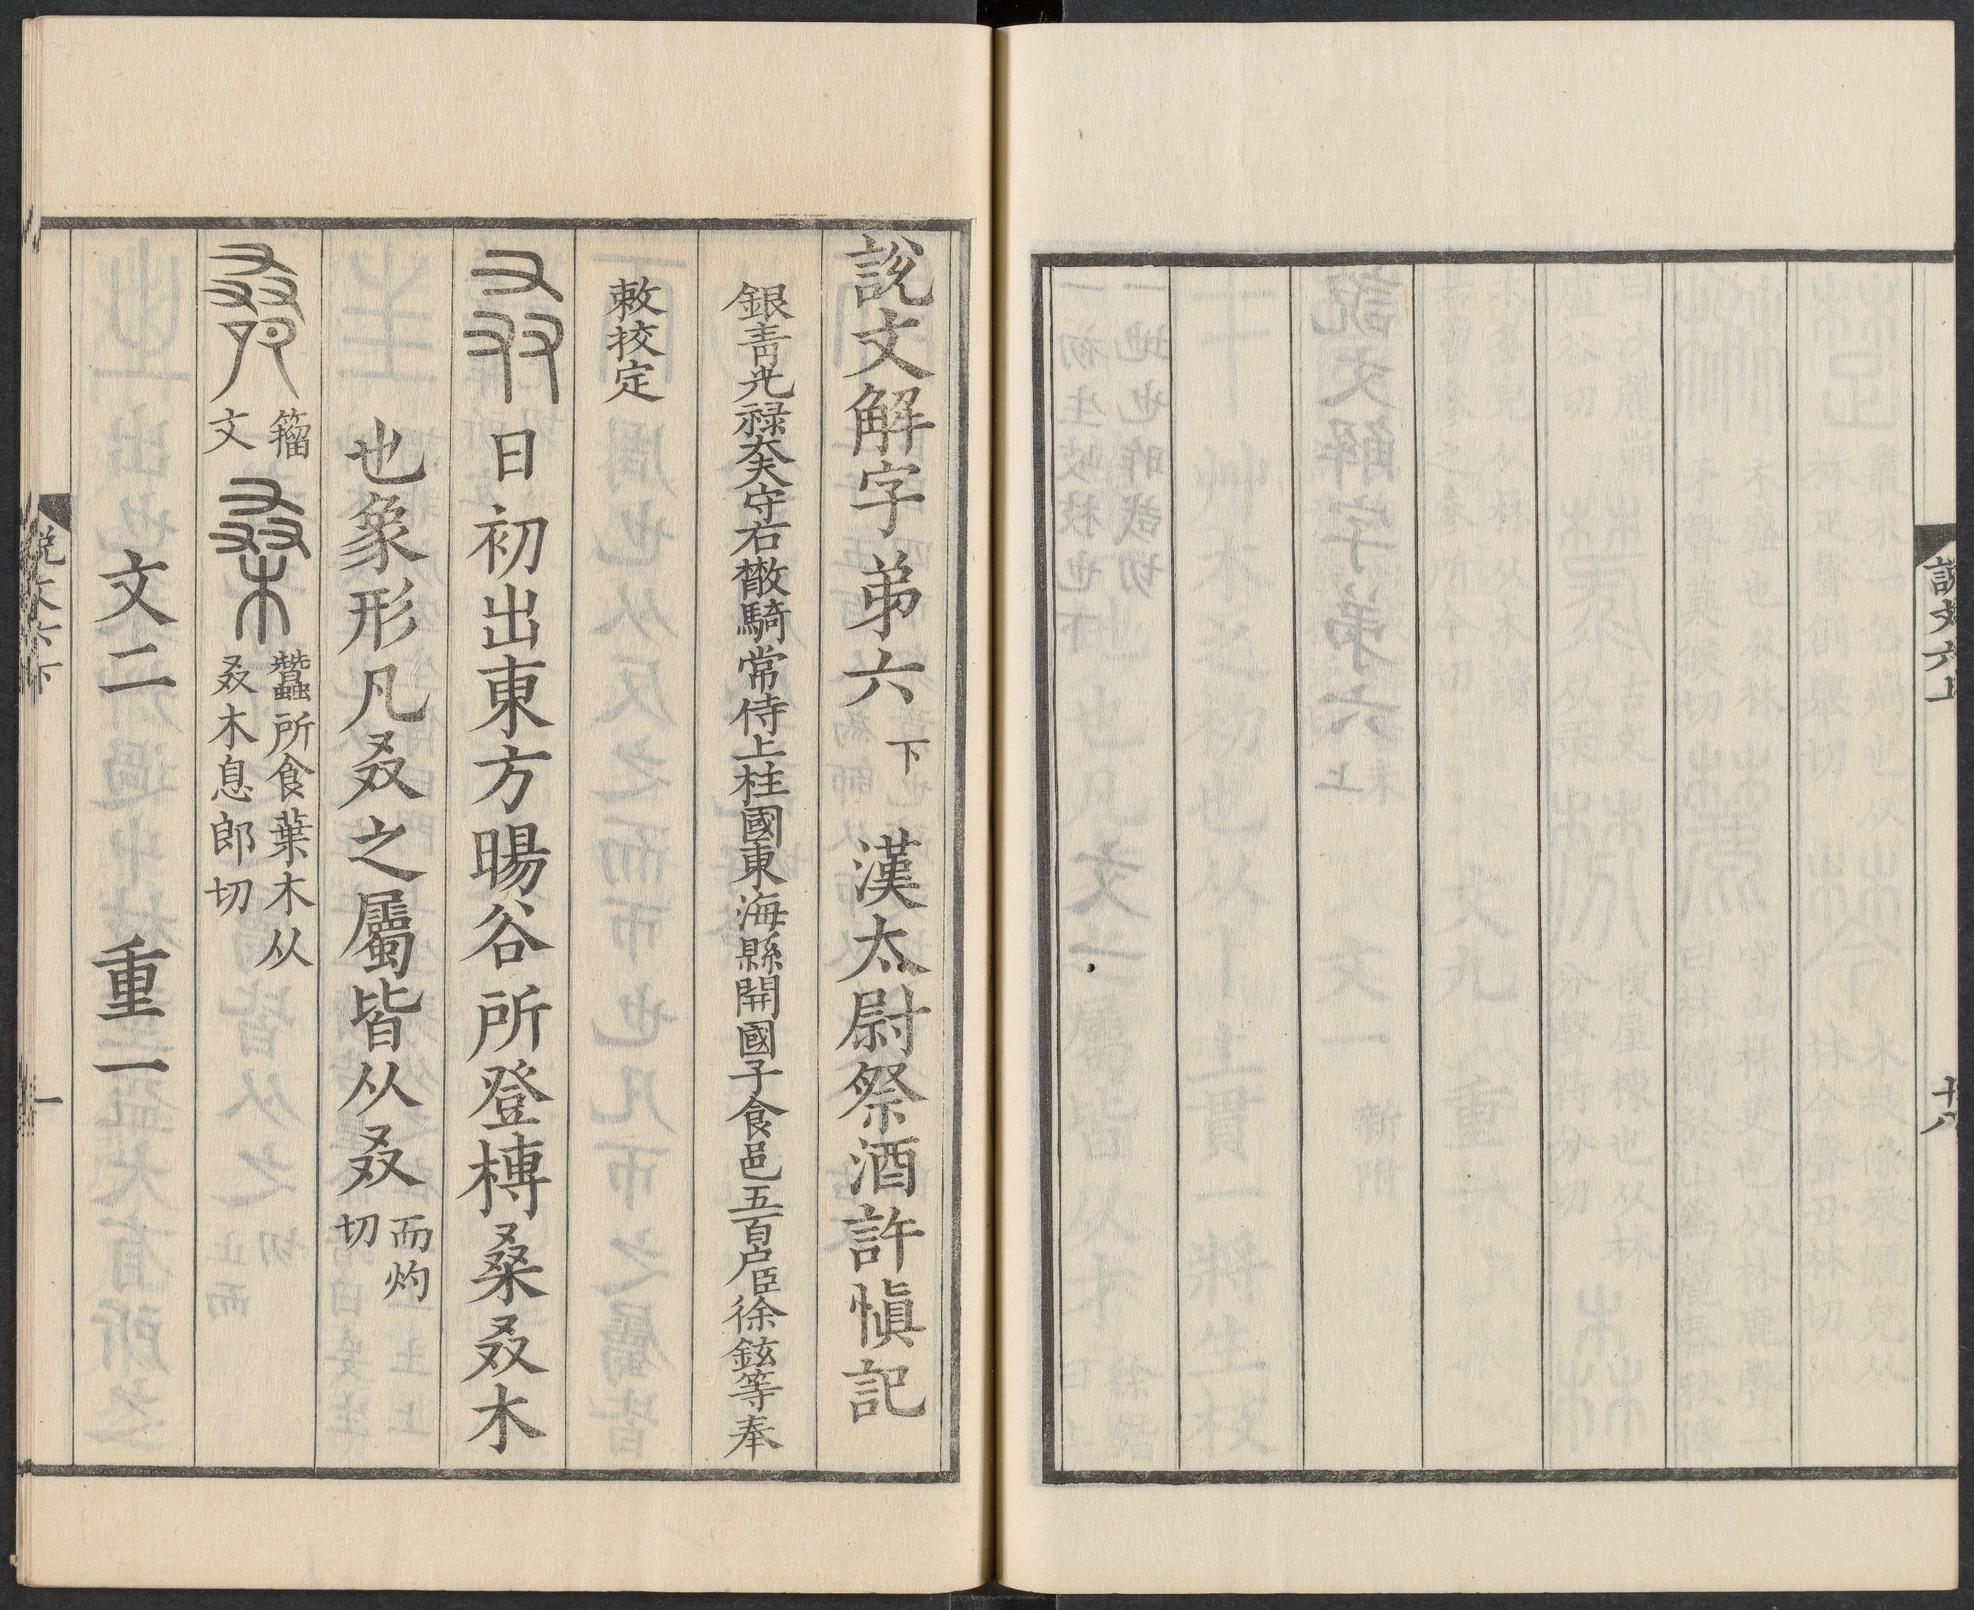 說文六上
十八
說文解字弟六下 漢太尉祭酒許愼記
銀青光禄大夫守右散騎常侍上柱國東海縣開國子食邑五百户臣徐鉉等奉
敕挍定
叒日初出東方暘谷所登榑桑叒木
也象形凡叒之屬皆从叒而灼切
籀文
桑蠶所食葉木从叒木息郎切
文二 重一
説文六下
一